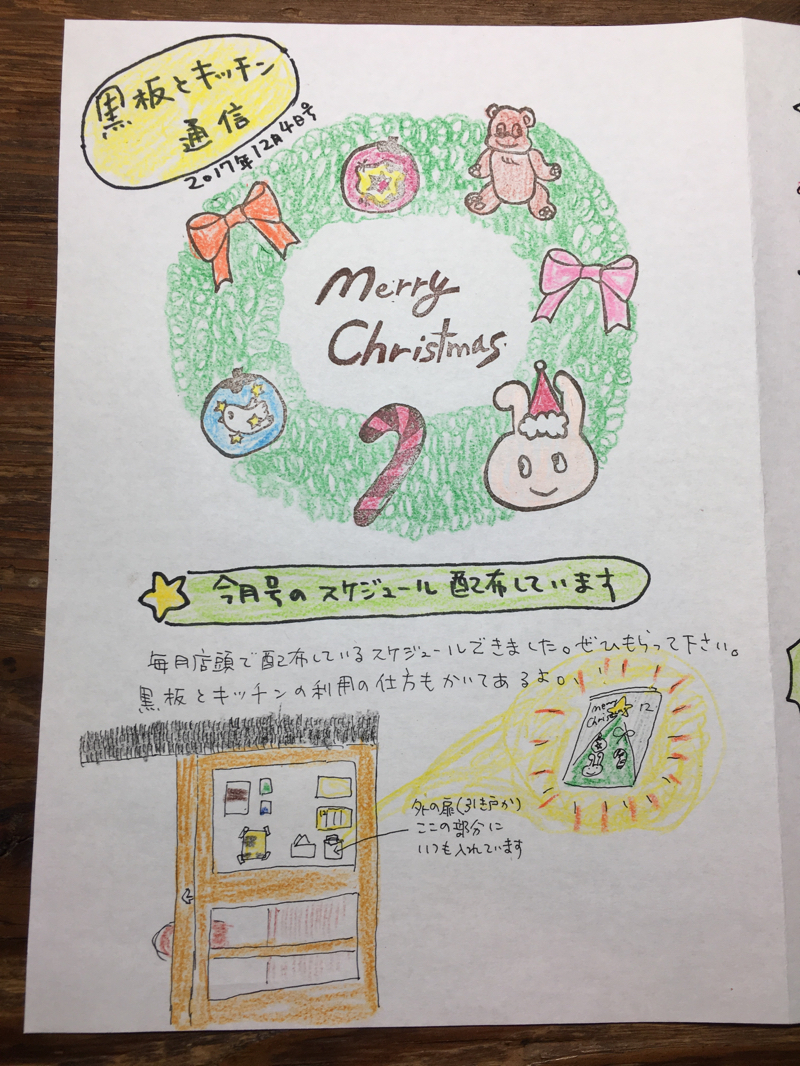 黒板とキッチン
通信
2017年12月4日号
Merry
Christmas.
今月号のスケジュール配布しています
毎月店頭で配布しているスケジュールできました。ぜひもらって下さい。
黒板とキッチンの利用の仕方もかいてあるよ。
merry
Christmas
12
外の扉(引き戸か)
ここの部分に
いつも入れています